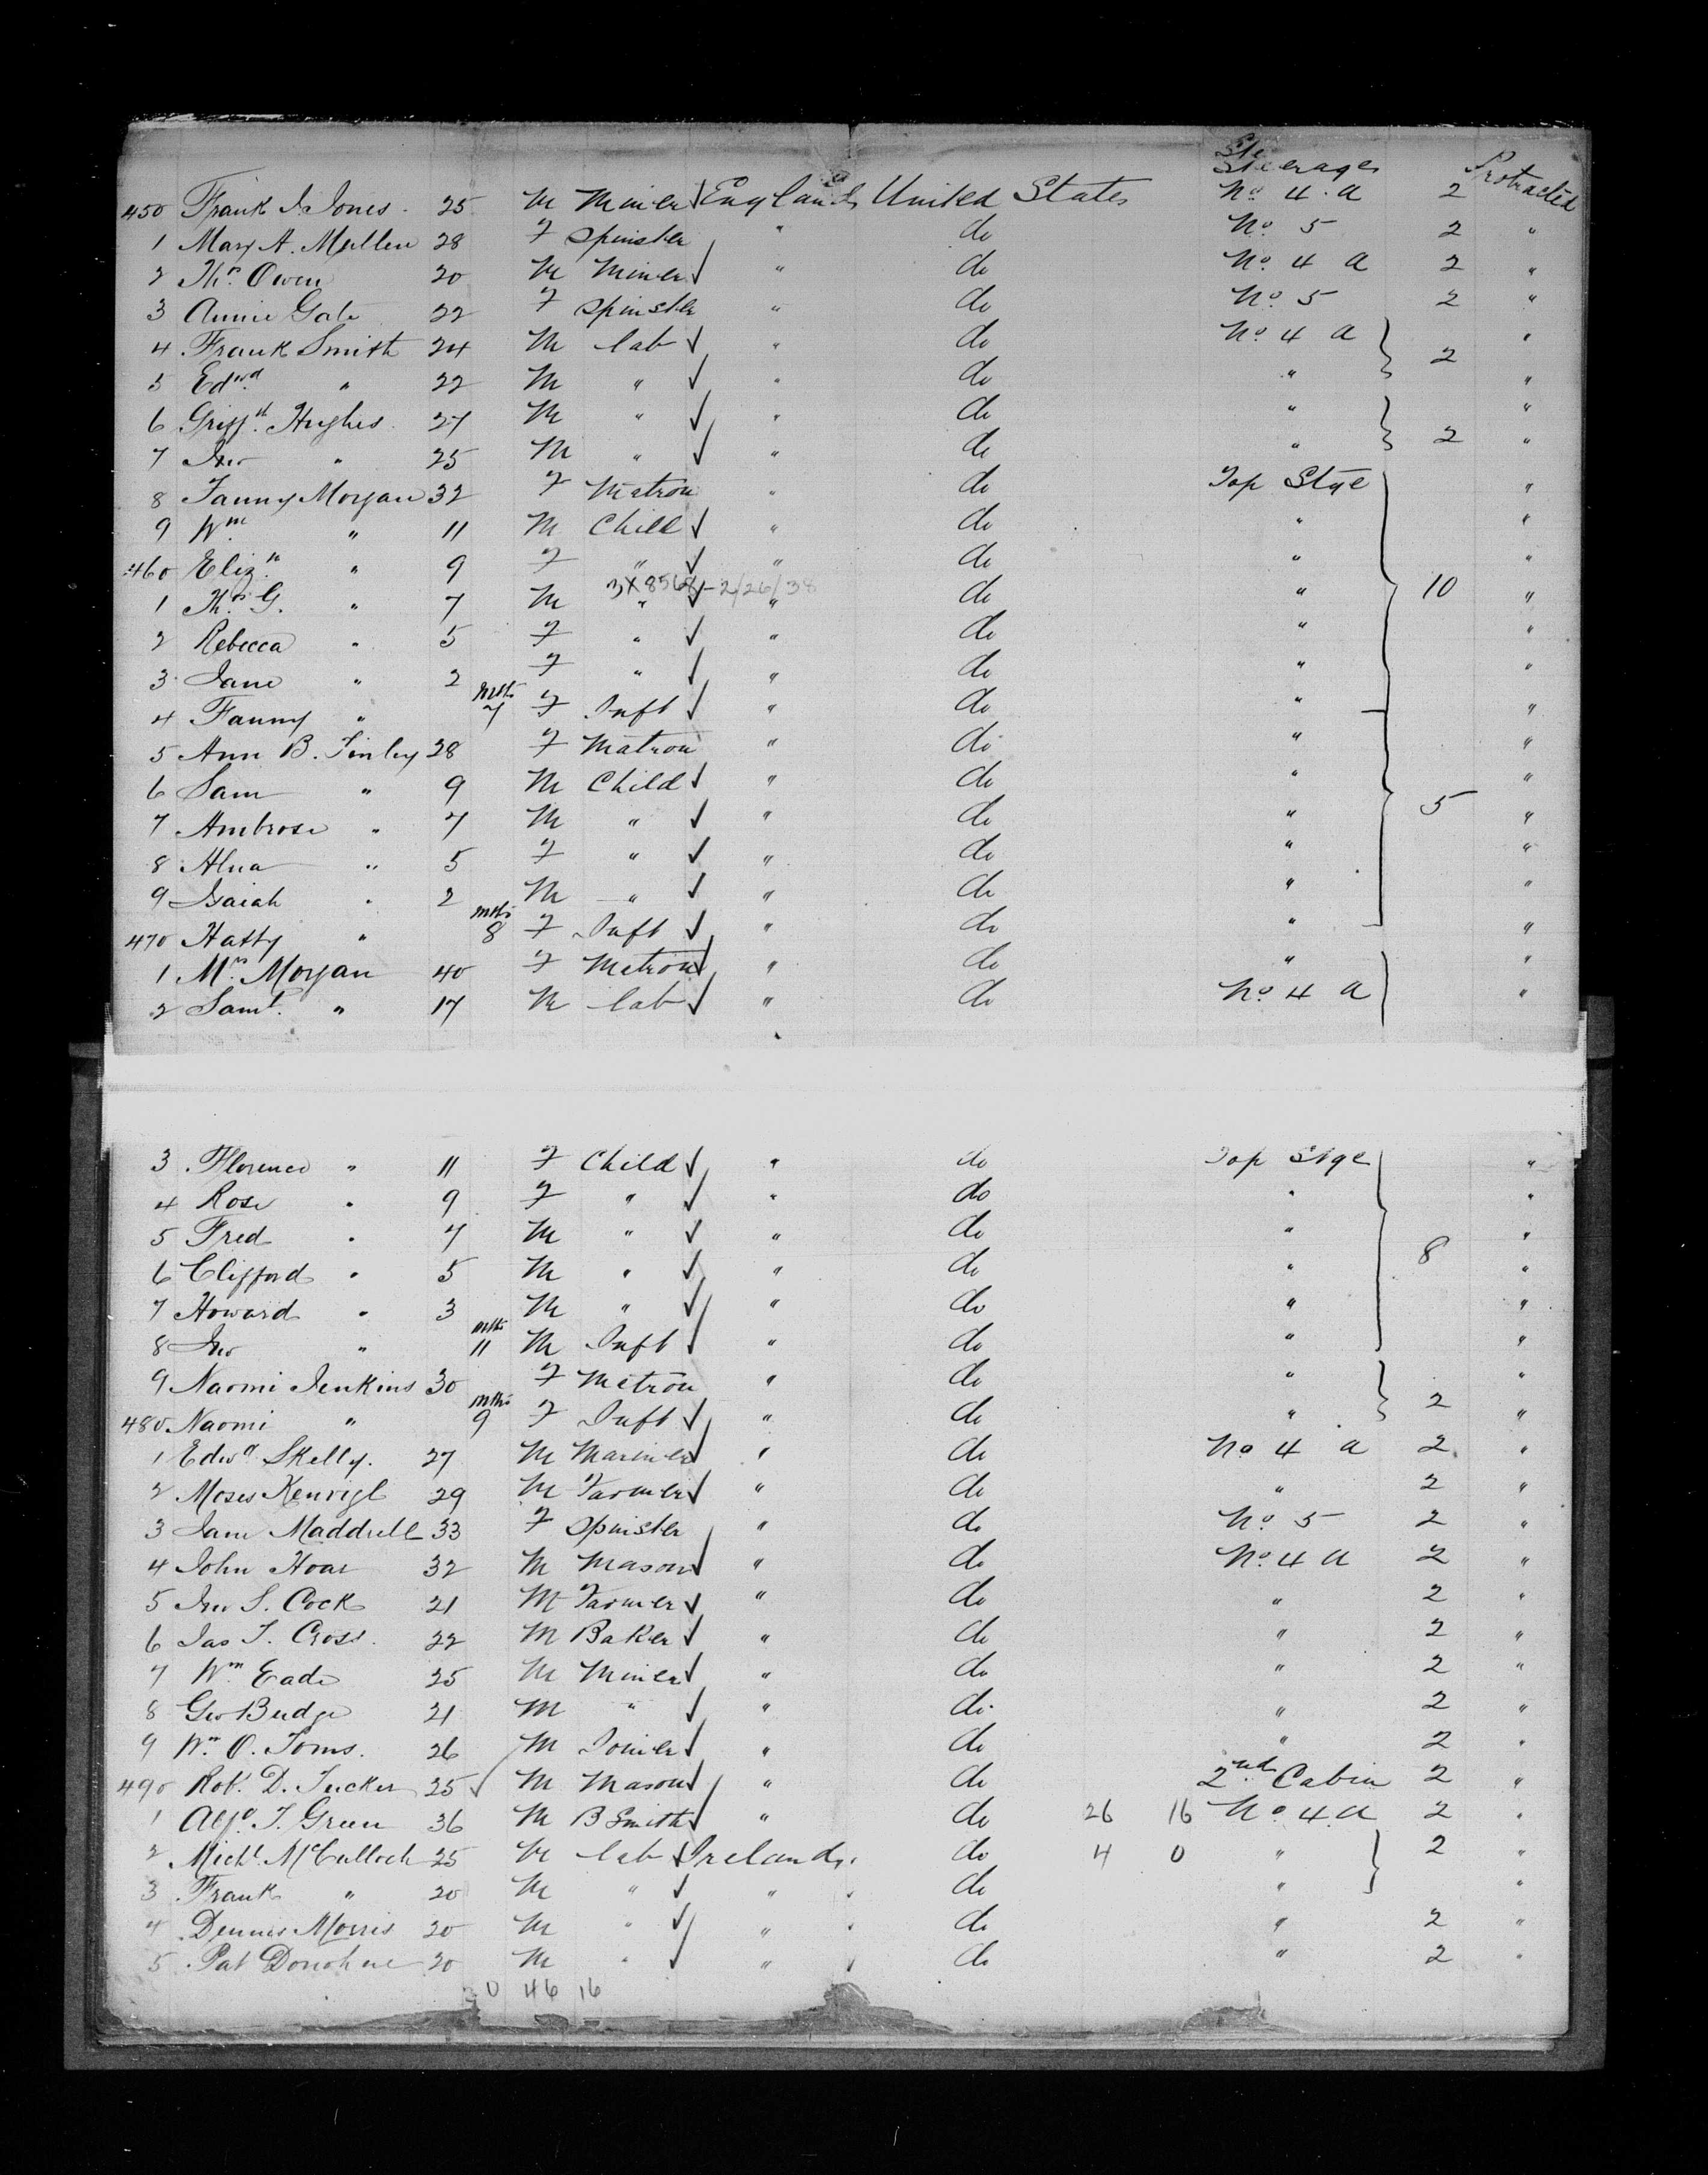 Steerage Protracted
450 Frank J. Jones 25 M Miner England United States No. 4 a 2
1 Mary A. Mullen 28 F Spinster " do No. 5 2 "
2 Thos Owen 20 M Miner " do No. 4 a 2 "
3 Annie Gate 22 F Spinster " do No. 5 2 "
4 Frank Smith 24 M lab " do No. 4 a 2 "
5 Edwd " 22 M " " do " "
6 Griffth Hughes 27 M " " do " 2 "
7 Jno " 25 M " " do " "
8 Fanny Morgan 32 F Matron " do Top Stge "
9 Wm " 11 M Child " do " "
460 Elizth " 9 F " " do " "
3X8568-2/26/38
1 Thos G. " 7 M " " do " 10 "
2 Rebecca " 5 F " " do " "
3 Jane " 2 F " " do " "
4 Fanny " mths 7 F Inft " do " "
5 Ann B. Finley 28 F Matron " do " "
6 Sam " 9 M Child " do " "
7 Ambrose " 7 M " " do " 5 "
8 Alna " 5 F " " do " "
9 Isaiah " 2 M " " do " "
470 Hatty " mths 8 F Inft " do " "
1 Mrs Morgan 40 F Matron " do " "
2 Saml. " 17 M lab " do No. 4 a "
3 Florence " 11 F Child " do Top Stge "
4 Rose " 9 F " " do " "
5 Fred " 7 M " " do " "
6 Clifford " 5 M " " do " 8 "
7 Howard " 3 M " " do " "
8 Jno " mths 11 M Inft " do " "
9 Naomi Jenkins 30 F Matron " do " "
480 Naomi " mths 9 F Inft " do " 2 "
1 Edwd Skelly. 27 M Mariner " do No 4 a 2 "
2 Moses Kenvigl 29 M Farmer " do " 2 "
3 Jane Maddrell 33 F Spinster " do No. 5 2 "
4 John Hoar 32 M Mason " do No. 4 a 2 "
5 Jno S. Cock 21 M Farmer " do " 2 "
6 Jas T. Cross. 22 M Baker " do " 2 "
7 Wm Eade 25 M Miner " do " 2 "
8 Geo Budge 21 M " " do " 2 "
9 Wm O. Toms. 26 M Joiner " do " 2 "
490 Robt. D. Tucker 25 M Mason " do 2nd Cabin 2 "
1 Alfd. T. Green 36 M B Smith " do 26 16 No. 4 a 2 "
2 Michl. McCulloch 25 M lab Ireland do 4 0 " 2 "
3 Frank " 20 M " " do " "
4 Dennis Morris 20 M " " do " 2 "
5 Pat Donohue 20 M " " do " 2 "
46 16